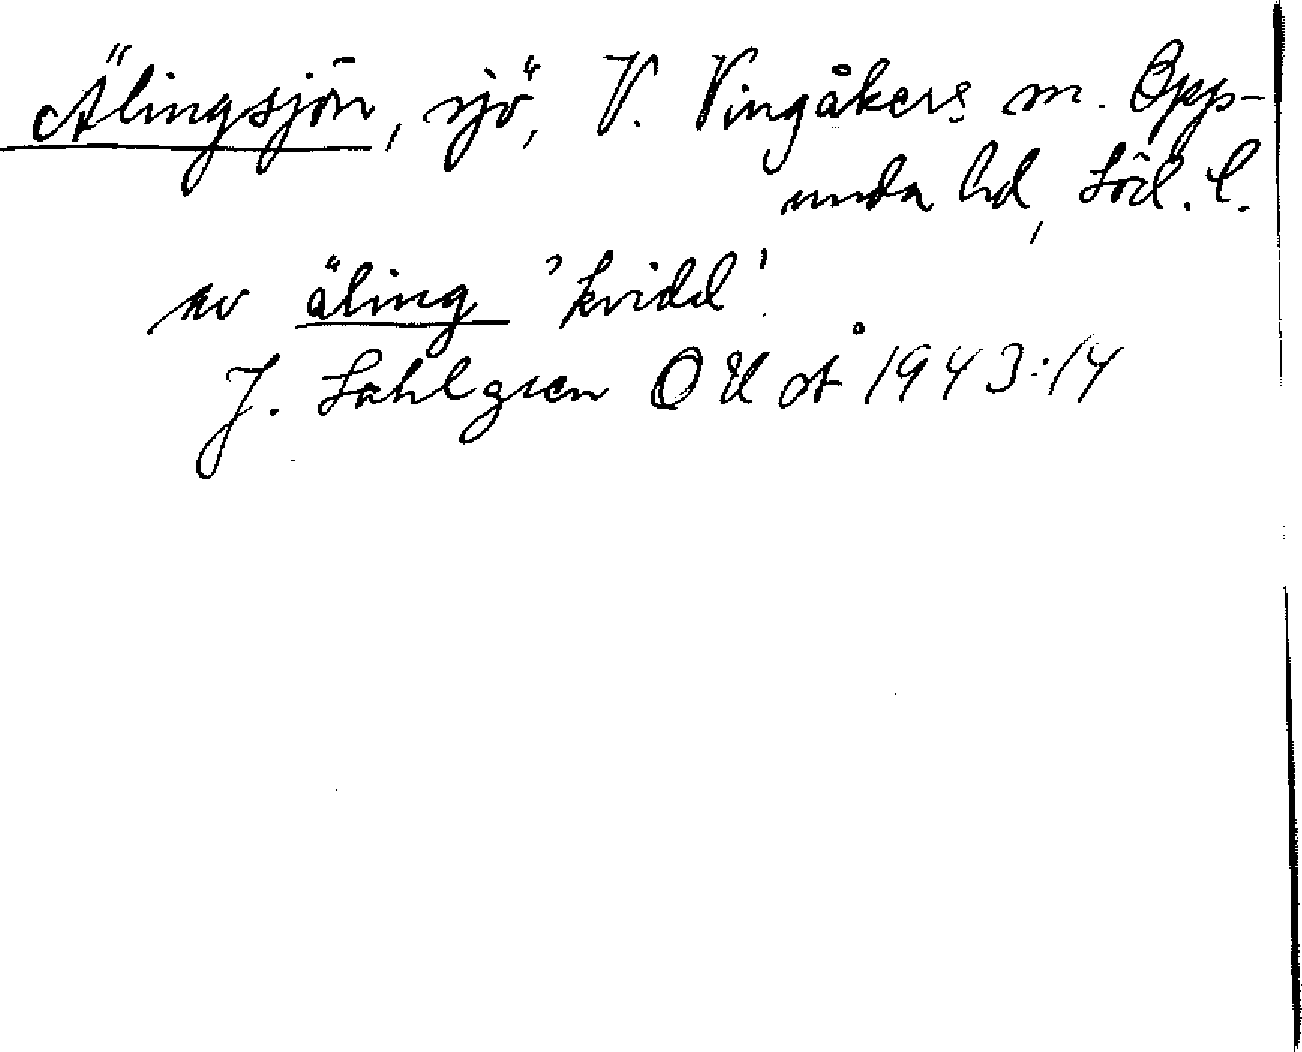 Älingsjön, sjö, V. Vingåkers sn. Opp-
unda hd, Söd. l.
av äling 'kvidd'.
J. Sahlgren OUÅ 1943:14